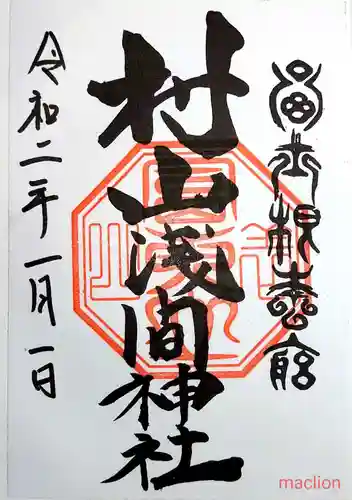 富士根本宮
村山浅間神社
令和二年一月一日
maclion